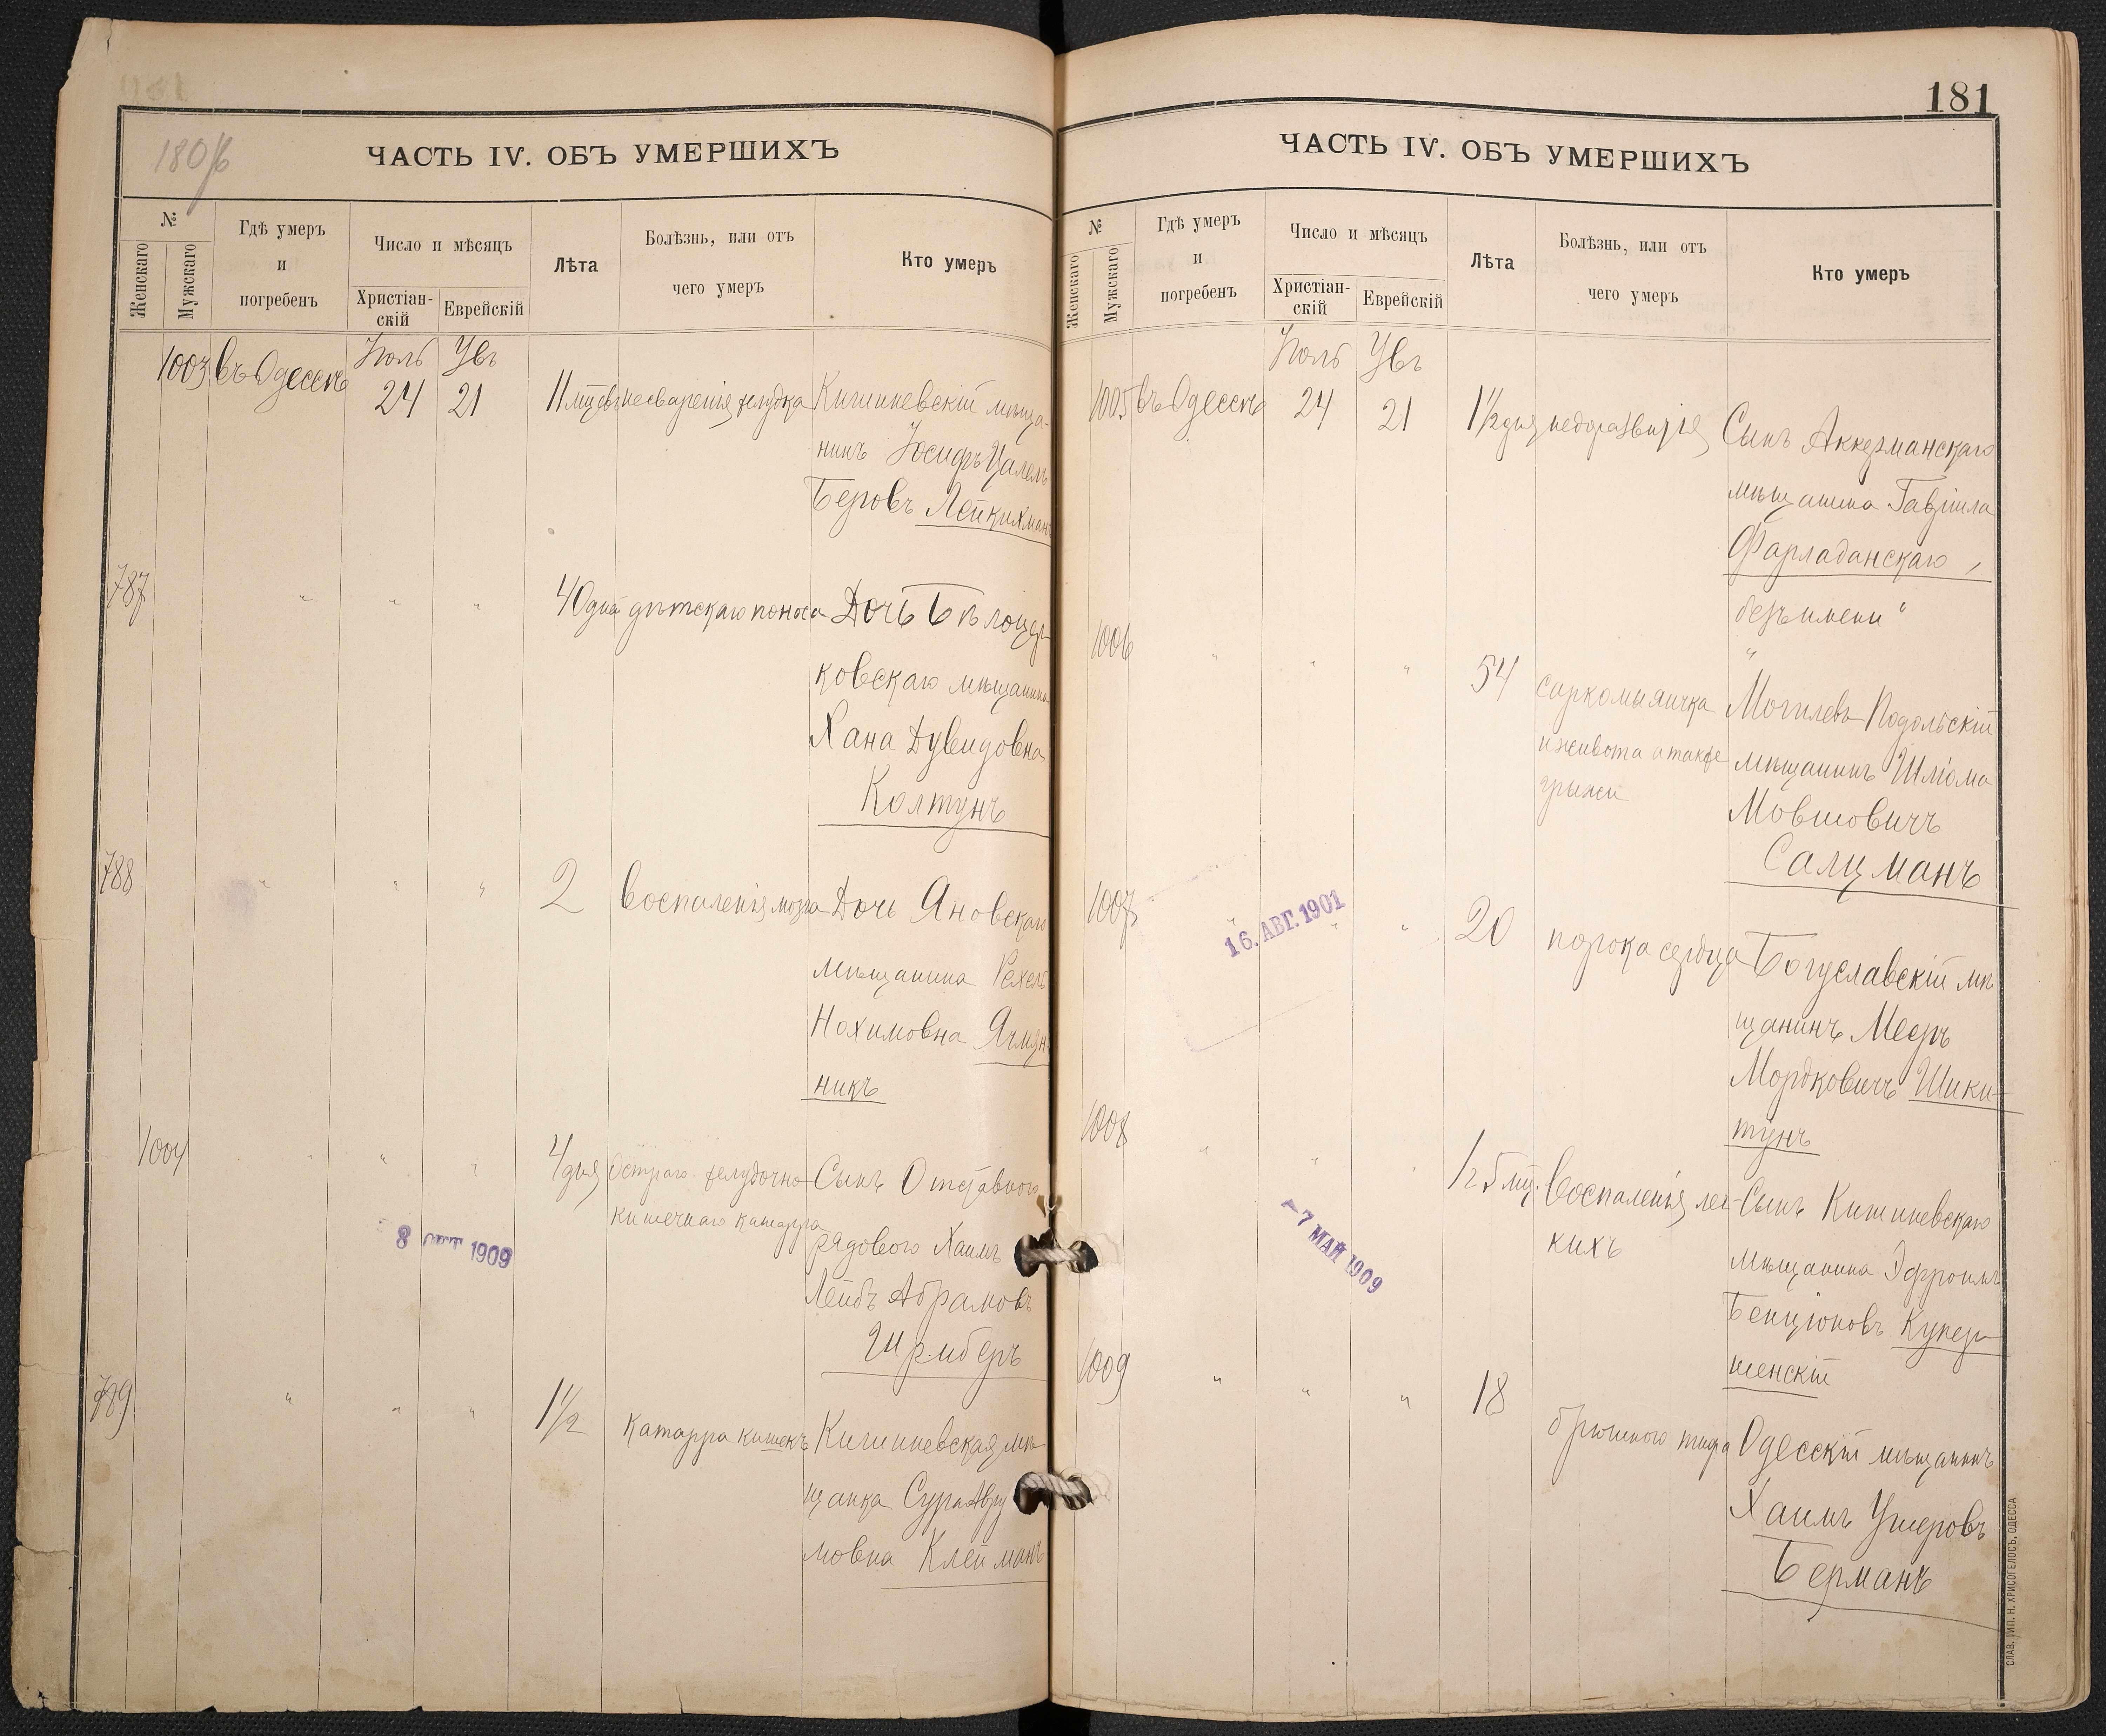 180/б
ЧАСТЬ IV. ОБЪ УМЕРШИХЪ
№
Женскаго
Мужскаго
Гдѣ умеръ
и
погребенъ
Число и мѣсяцъ
Христіан-
скій
Еврейскій
Лѣта
Болѣзнь, или отъ
чего умеръ
Кто умеръ
Іюль Увъ
1003 въ Одессѣ 24 21 11 мцевъ несваренія желудка Кишиневскій мѣща-
нинъ Іосифъ Цалель
Беровъ Лейкихманъ
787 " " " 40 дна дѣтскаго поноса Дочь Бѣлоцер-
ковскаго мѣщанина
Хана Дувидовна
Колтунъ
788 " " " 2 воспаленія мозга Дочь Яновскаго
мѣщанина Рехель
Нохимовна Ячмен-
никъ
1004 " " " 4 дня Остраго желудочно- Сынъ Отставного
кишечнаго катарра
рядового Хаимъ
Лейбъ Абрамовъ
Шрыберъ
8 1909
789 " " " 1½ катарра кишекъ Кишиневская мѣ-
щанка Сура Авру
мовна Клейманъ
181
ЧАСТЬ IV. ОБЪ УМЕРШИХЪ
№
Женскаго
Мужскаго
Гдѣ умеръ
и
погребенъ
Число и мѣсяцъ
Христіан-
скій
Еврейскій
Лѣта
Болѣзнь, или отъ
чего умеръ
Кто умеръ
Іюль Увъ
1005 въ Одессѣ 24 21 1½ дня недоразвитія Сынъ Аккерманскаго
мѣщанина Гавріила
Фарладанскаго,
безъ имени"
1006 " " " 54 саркомы яичка Могилевъ-Подольскій
и живота а также мѣщанинъ Шліома
грыжи
Мовшовичъ
Салцманъ
1007 " " " 20 порока сердца Богуславскій мѣ
щанинъ Мееръ
Мордковичъ Шики-
тунъ
16. АВГ. 1901
1008 " " " 1 г 5 мц. Воспаленія лег- Сынъ Кишиневскаго
кихъ
мѣщанина Эфроимъ
Бенціоновъ Купер-
шенскій
-7 МАЙ 1909
1009 " " " 18 брюшного тифа Одесскій мѣщанинъ
Хаимъ Ушеровъ
Берманъ
СЛАВ. ТИП. Н. ХРИСОГЕЛОСЪ, ОДЕССА